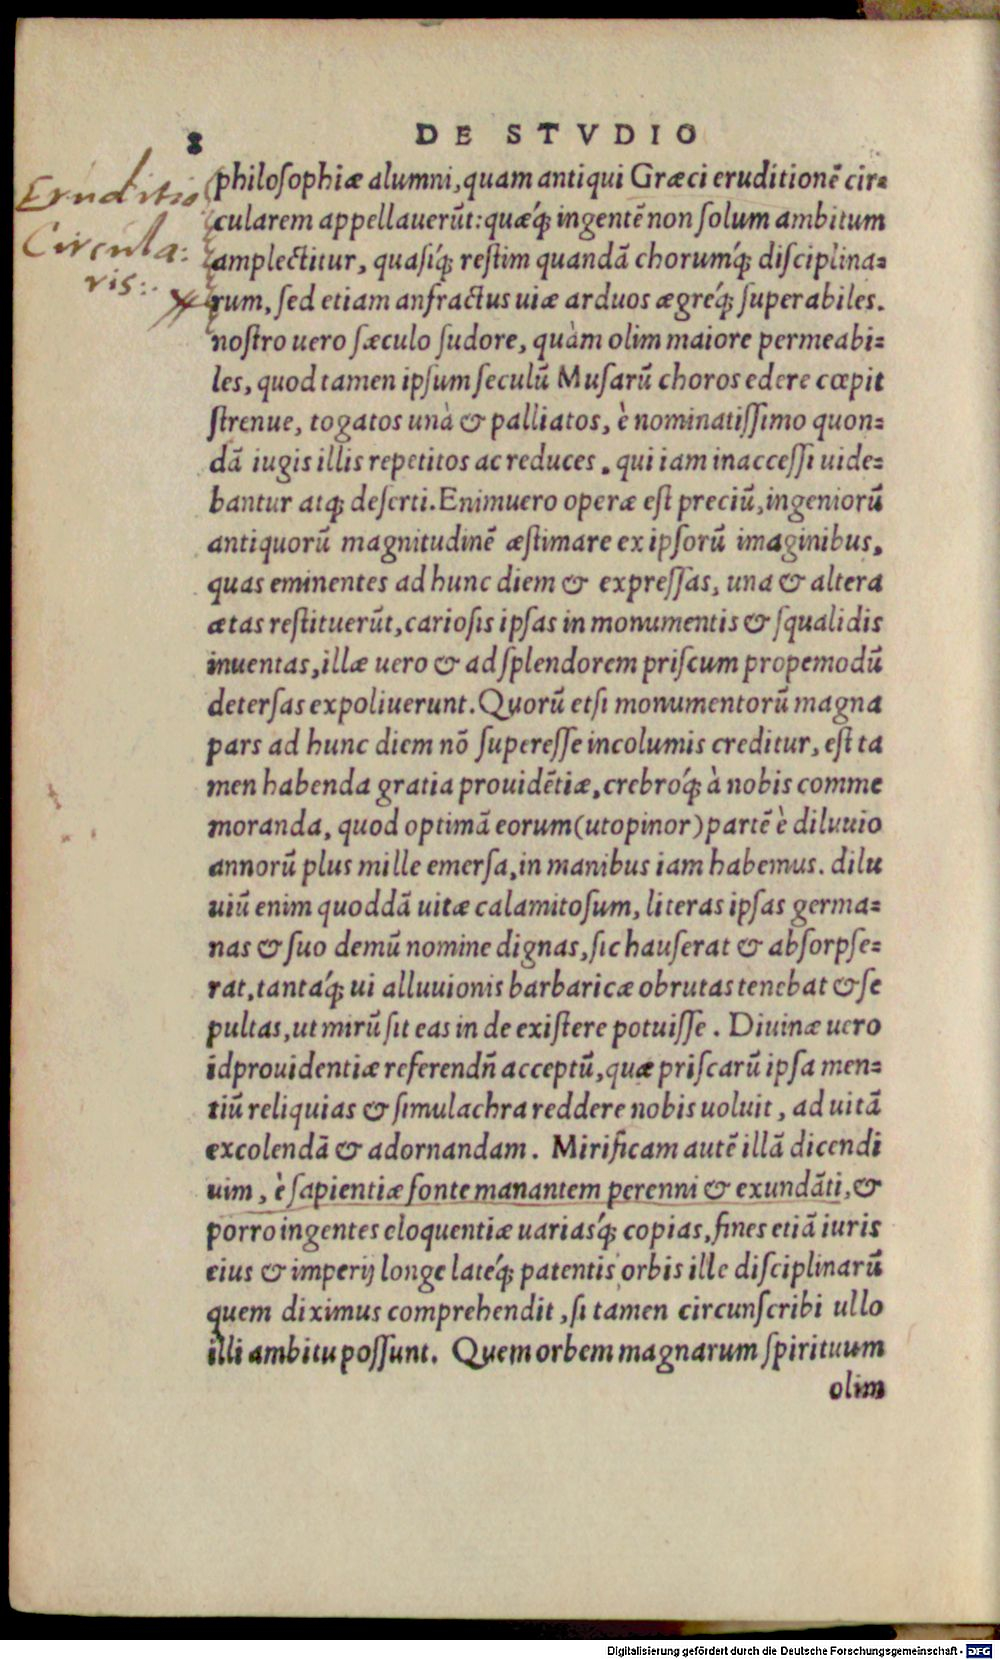 8
DE STVDIO
Eruditio
Circula:
ris:.
philoſophiæ alumni, quam antiqui Græci eruditionẽ cir=
cularem appellauerũt: quæq́; ingentẽ non ſolum ambitum
amplectitur, quaſiq́; reſtim quandã chorumq́; diſciplina=
rum, ſed etiam anfractus uiæ arduos ægreq́; ſuperabiles.
noſtro uero ſæculo ſudore, quàm olim maiore permeabi=
les, quod tamen ipſum ſeculũ Muſarũ choros edere cœpit
ſtrenue, togatos unà & palliatos, è nominatiſſimo quon=
dã iugis illis repetitos ac reduces, qui iam inacceſſi uide=
bantur atq; deſerti. Enimuero operæ eſt preciũ, ingeniorũ
antiquorũ magnitudinẽ æſtimare ex ipſorũ imaginibus,
quas eminentes ad hunc diem & expreſſas, una & altera
ætas reſtituerũt, carioſis ipſas in monumentis & ſqualidis
inuentas, illæ uero & ad ſplendorem priſcum propemodũ
deterſas expoliuerunt. Quorũ etſi monumentorũ magna
pars ad hunc diem nõ ſupereſſe incolumis creditur, eſt ta
men habenda gratia prouidẽtiæ, crebroq́; à nobis comme
moranda, quod optimã eorum (ut opinor) partẽ è diluuio
annorũ plus mille emerſa, in manibus iam habemus. dilu
uiũ enim quoddã uitæ calamitoſum, literas ipſas germa=
nas & ſuo demũ nomine dignas, ſic hauſerat & abſorpſe=
rat, tantaq́; ui alluuionis barbaricæ obrutas tenebat & ſe
pultas, ut mirũ ſit eas in de exiſtere potuiſſe. Diuinæ uero
id prouidentiæ referendñ acceptũ, quæ priſcarũ ipſa men=
tiũ reliquias & ſimulachra reddere nobis uoluit, ad uitã
excolendã & adornandam. Mirificam autẽ illã dicendi
uim, è ſapientiæ fonte manantem perenni & exundãti, &
porro ingentes eloquentiæ uariasq́; copias, fines etiã iuris
eius & imperij longe lateq́; patentis orbis ille diſciplinarũ
quem diximus comprehendit, ſi tamen circunſcribi ullo
illi ambitu poſſunt. Quem orbem magnarum ſpirituum
olim
Digitalisierung gefördert durch die Deutsche Forschungsgemeinschaft - DFG